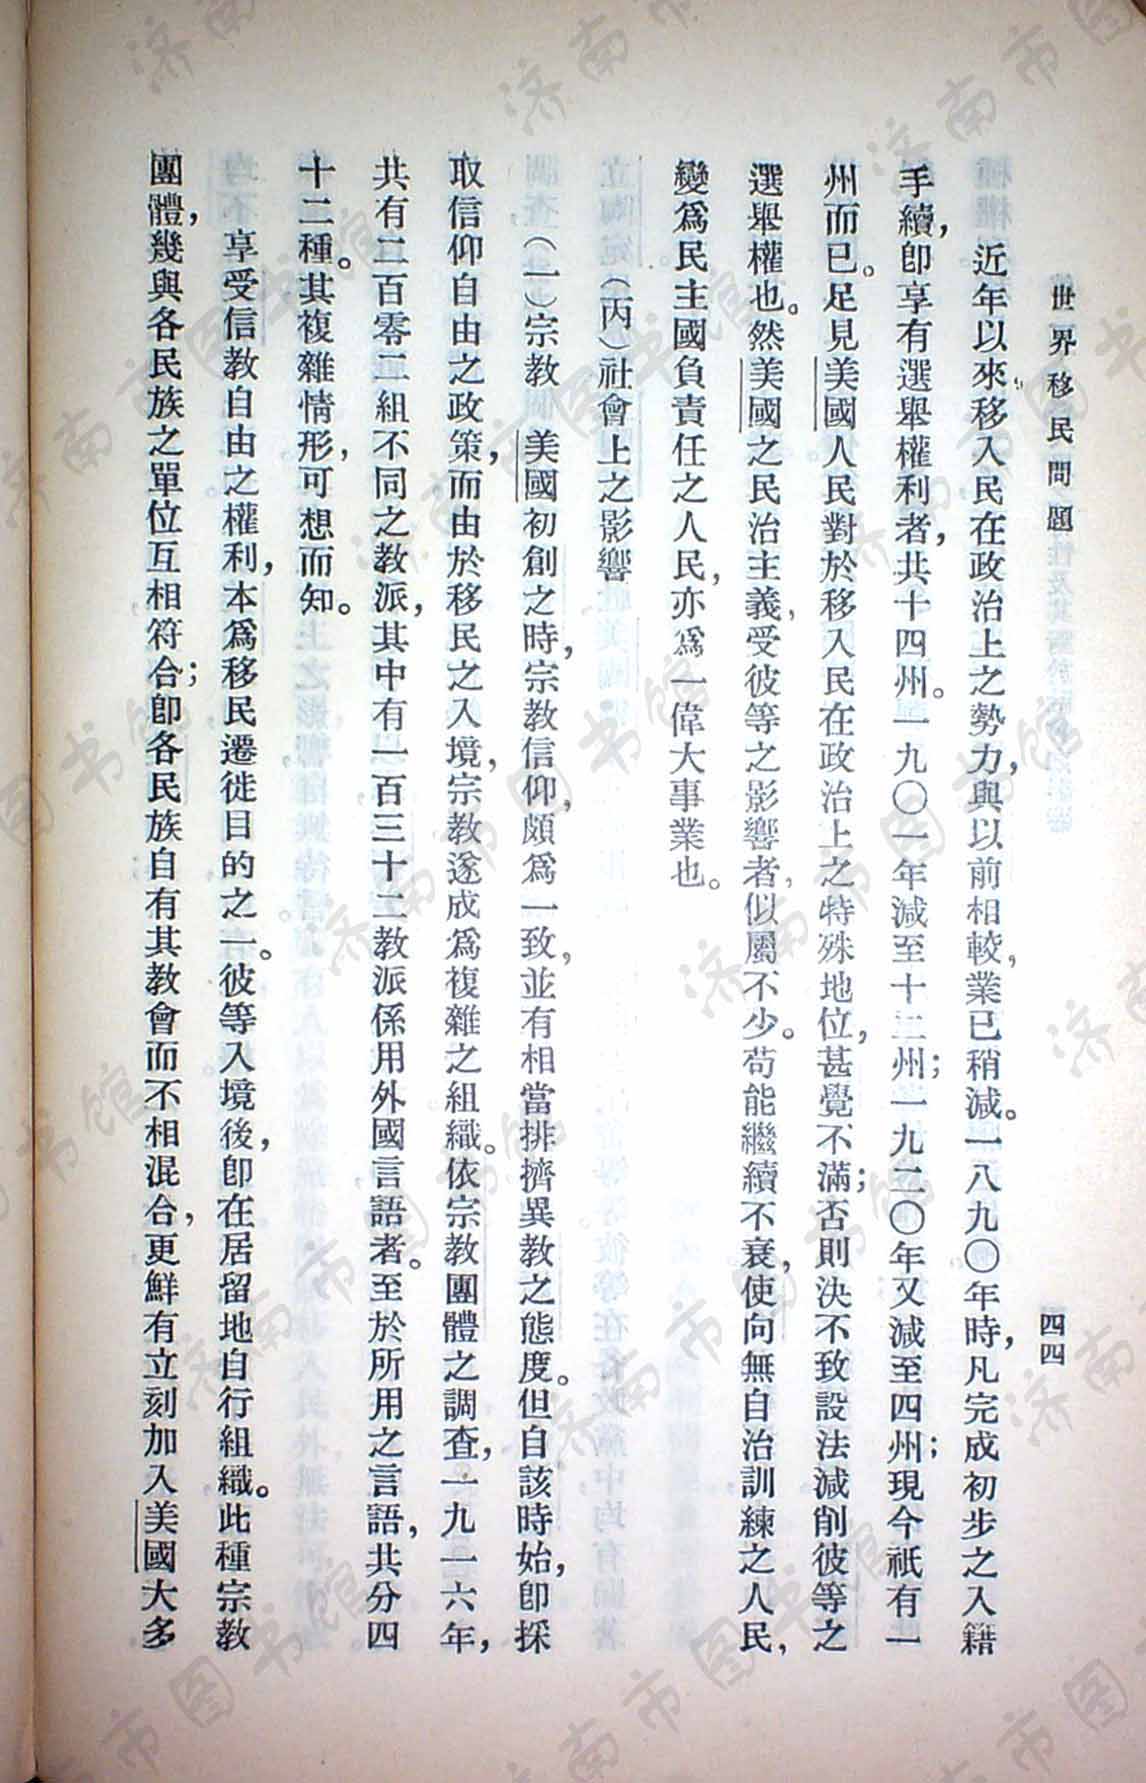 世界移民問題
四四
近年以來，移入民在政治上之勢力，與以前相較，業已稍減。一八九〇年時，凡完成初步之入籍
手續，卽享有選舉權利者，共十四州。一九〇一年減至十二州；一九二〇年又減至四州；現今祇有一
州而已。足見美國人民對於移入民在政治上之特殊地位，甚覺不滿；否則決不致設法減削彼等之
選舉權也。然美國之民治主義，受彼等之影響者，似屬不少。苟能繼續不衰，使向無自治訓練之人民，
變爲民主國負責任之人民，亦爲一偉大事業也。
（丙）社會上之影響
（一）宗教　美國初創之時，宗教信仰，頗爲一致，並有相當排擠異教之態度。但自該時始，卽採
取信仰自由之政策，而由於移民之入境，宗教遂成爲複雜之組織。依宗教團體之調查，一九一六年，
共有二百零二組不同之教派，其中有一百三十二教派係用外國言語者。至於所用之言語，共分四
十二種。其複雜情形，可想而知。
享受信教自由之權利，本爲移民遷徙目的之一。彼等入境後，卽在居留地自行組織。此種宗教
團體，幾與各民族之單位互相符合；卽各民族自有其教會而不相混合，更鮮有立刻加入美國大多
济南市图书馆